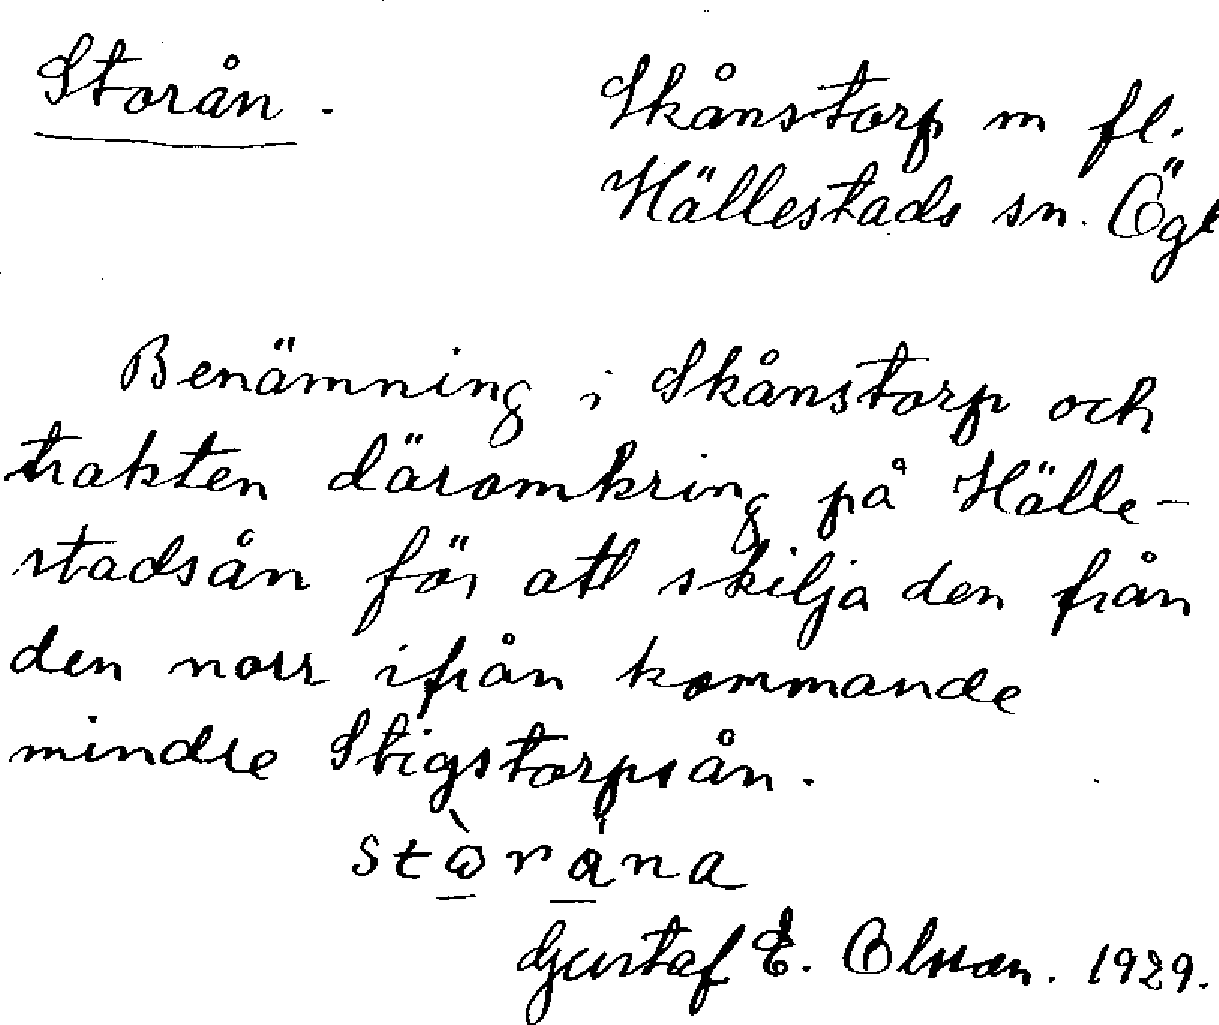 Storån.
Skånstorp m fl.
Hällestads sn. Ögl
Benämning i Skånstorp och
trakten däromkring på Hälle-
stadsån för att skilja den från
den norr ifrån kommande
mindre Stigstorpsån.
Gustaf E. Olsson. 1929.